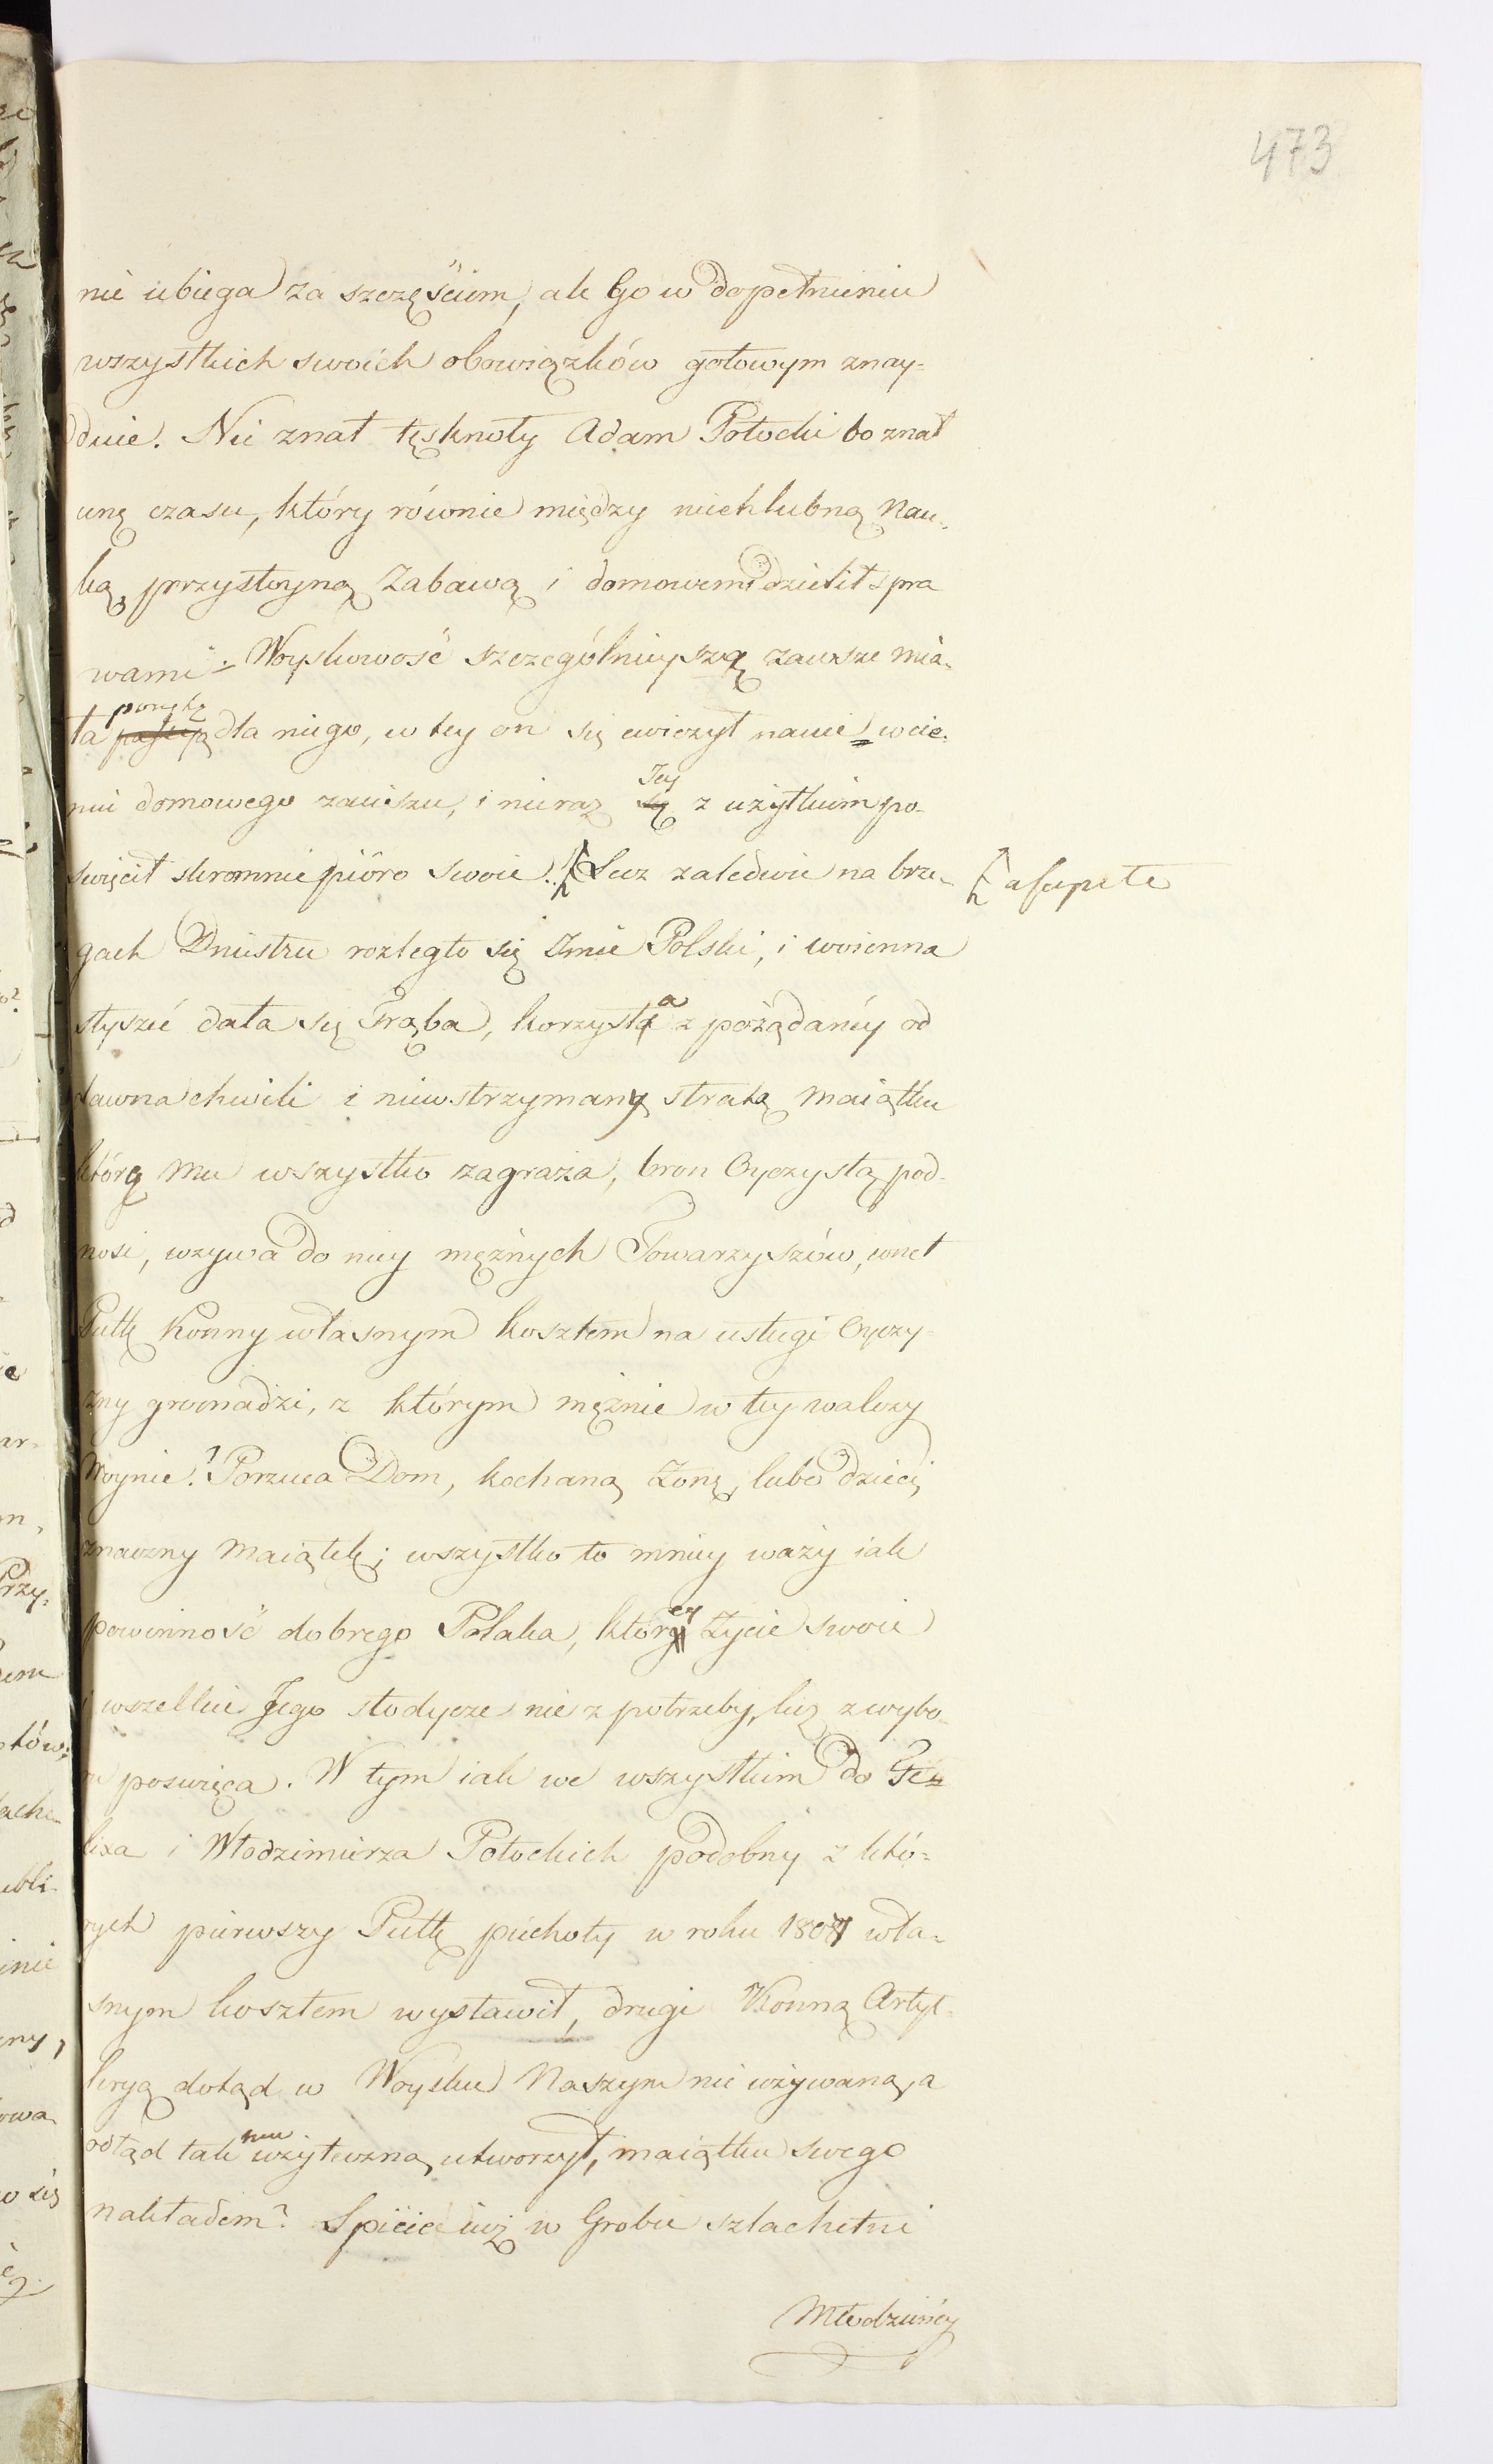 473
nie ubiega za szczęściem, ale Go w dopełnieniu
wszystkich swoich obowiązków gotowym znay=
duie. Nie znał tęsknoty Adam Potocki bo znał
cenę czasu, który równie między niechlubną Nau-
ką, przystoyną Zabawą i domowemi dzielił spra
wami. Woyskowość szczególnieyszą zawsze mia-
ła ponętę dla niego, w tey on się ćwiczył nauce w cie-
niu domowego zaciszu, i nieraz Jey z użytkiem po-
święcił skromnie pióro swoie. Lecz zaledwie na brze- a capite
gach Dniestru rozległo się Imie Polski, i woienna
słyszeć dała się Trąba, korzysta z pożądaney od
dawna chwili i niewstrzymany stratą Maiątku
którą mu wszystko zagraża, bron Oyczystą pod-
nosi, wzywa do niey mężnych Towarzyszów, wnet
Pułk Konny własnym kosztem na usługi Oyczy-
zny gromadzi, z którym mężnie w tey walczy
Woynie. Porzuca Dom, kochaną Żonę, lube dzieci,
znaczny Maiątek; wszystko to mniey waży iak
powinność dobrego Polaka, który Życie swoie
i wszelkie Jego słodycze nie z potrzeby, lecz z wybo-
ru poswięca. W tym iak we wszystkim do Fe=
lixa i Włodzimierza Potockich podobny z któ=
rych pierwszy Pułk piechoty w roku 1807 wła-
snym kosztem wystawił, drugi Konną Artyl-
leryą dotąd w Woysku Naszym nie używaną, a
odtąd tak mu użyteczną utworzył, maiątku swego
nakładem. Spicie iuż w Grobie szlachetni
Młodzieńcy